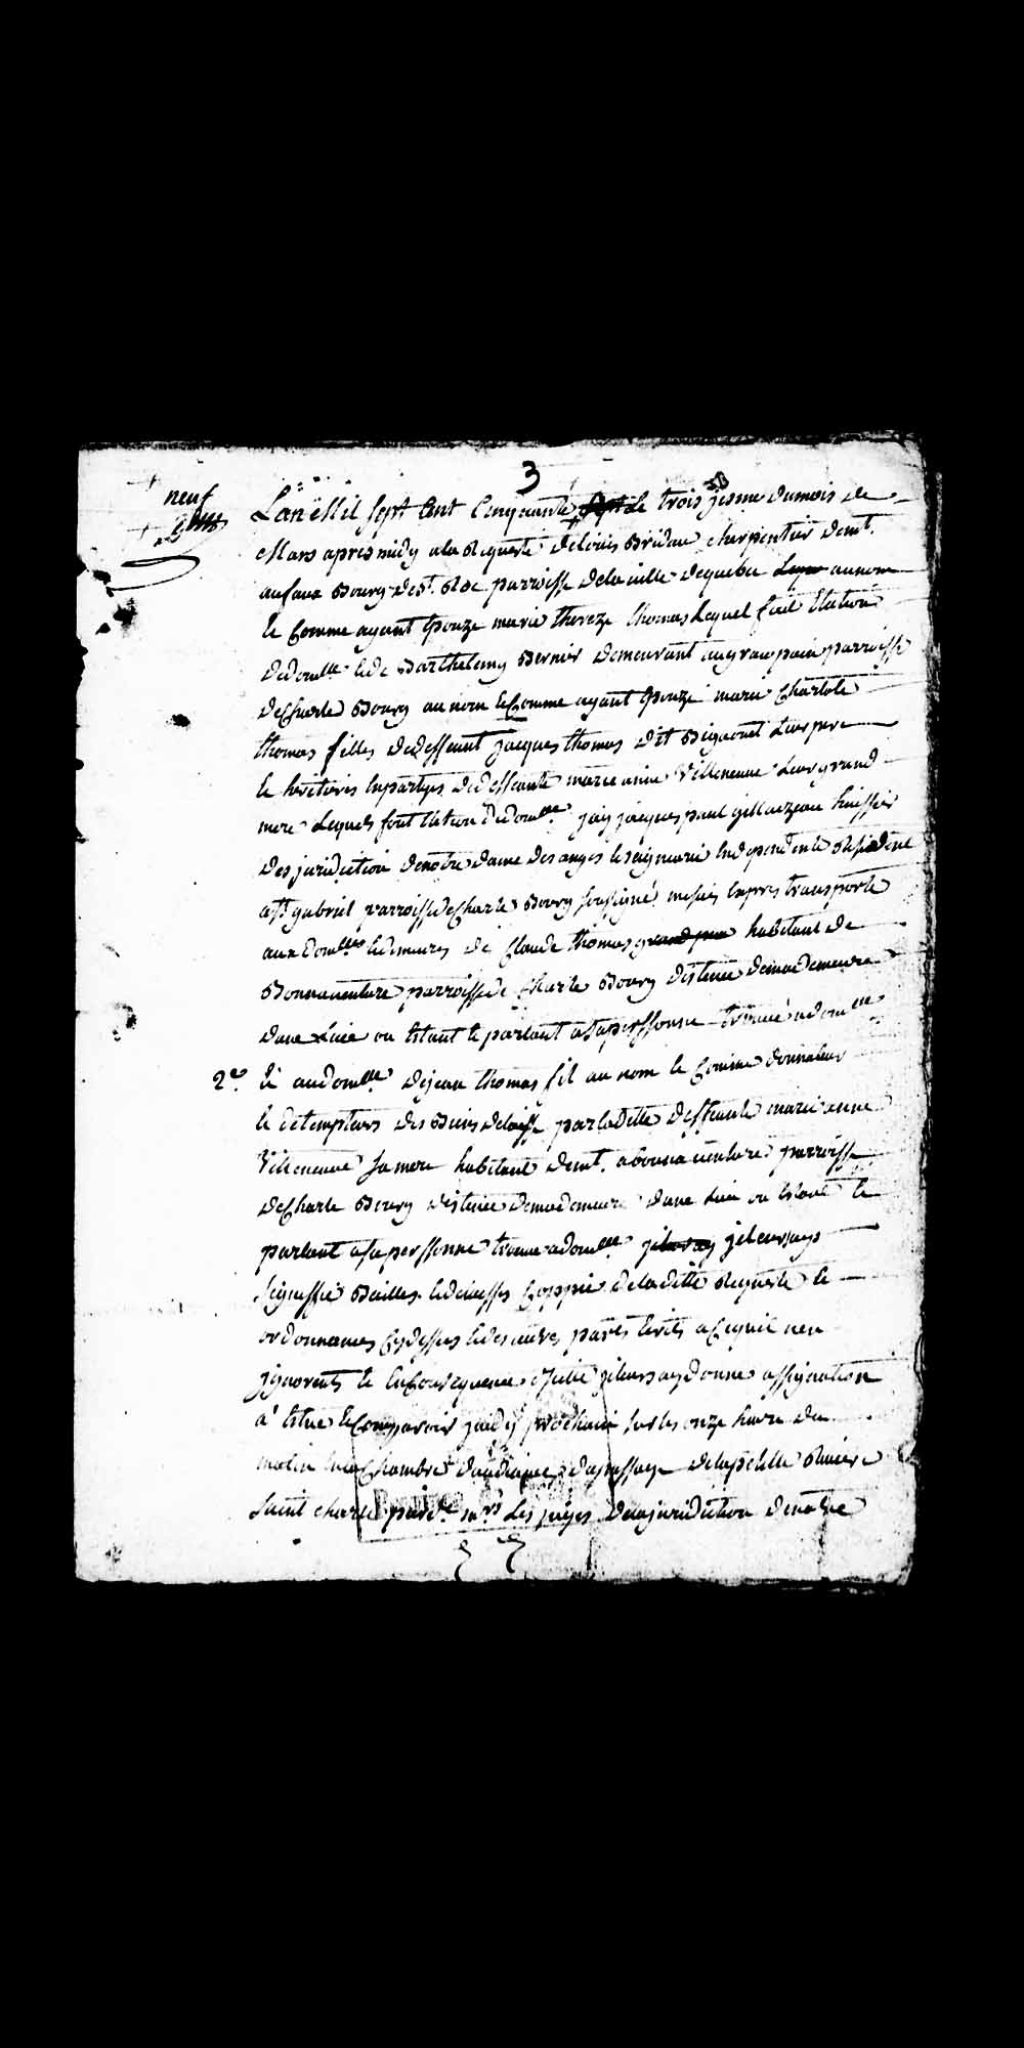 3
neuf
L'an Mil sept Cent Cinquante le trois jesme du mois de
Mars apres midy a la Requeste de Louis Bridau charpentier demt.
au faux Bourg de St. Roc parroisse de la ville de quebec au nom
Et Comme ayant Epouze marie thereze thomas Lequel fait Election
de domlle. de Barthelemy Bernier demeurant au gros pain parroisse
de Charle Boury au nom Et Comme ayant Epouzé marie Charlote
thomas filles de deffeunt jacques thomas dit Bigaouet Leur pere
Et heritieres en partyes de deffeunte marie anne Villeneuve Leur grand
mere Lequels font Election de domlle. jay jacques paul gillaezeau huissier
des juridiction de nostre dame des anges Et seigneurie Independente Residene
a St gabriel parroisse de Charle Boury sousigné mesuis Expres transporté
aux domlles Et demeures de Claude thomas habitant de
Bonnaventure parroisse de Charle Boury distence de ma demeure
d'une Luie ou Estant Et parlant a sa perssonne trouvé a domlle
2e. Et au domlle de jean thomas fil au nom Et Comme donnateur
Et detempteurs des Biens delaisse par la ditte deffeunte marie anne
Villeneuve sa mere habitant demt. a bonna venture parroisse
de Charle Boury distence de ma demeure d'une Luie ou Estant Et
parlant a sa perssonne trouve a domlle je leurs ays
signiffie Bailles Et delaisses Coppie de la ditte Requeste Et
ordonnances Cy dessus Et des autres parts Ecrits a Ce quil nen
jgnorents Et En Consequence jeleurs ay donne assignation
a Estre Et Comparoir jeudy prochain sur les onze heure du
matin En la Chambre d'audiance du passage de la petitte Riviere
saint charle pard.t mrs Les juges de la juridiction de nostre